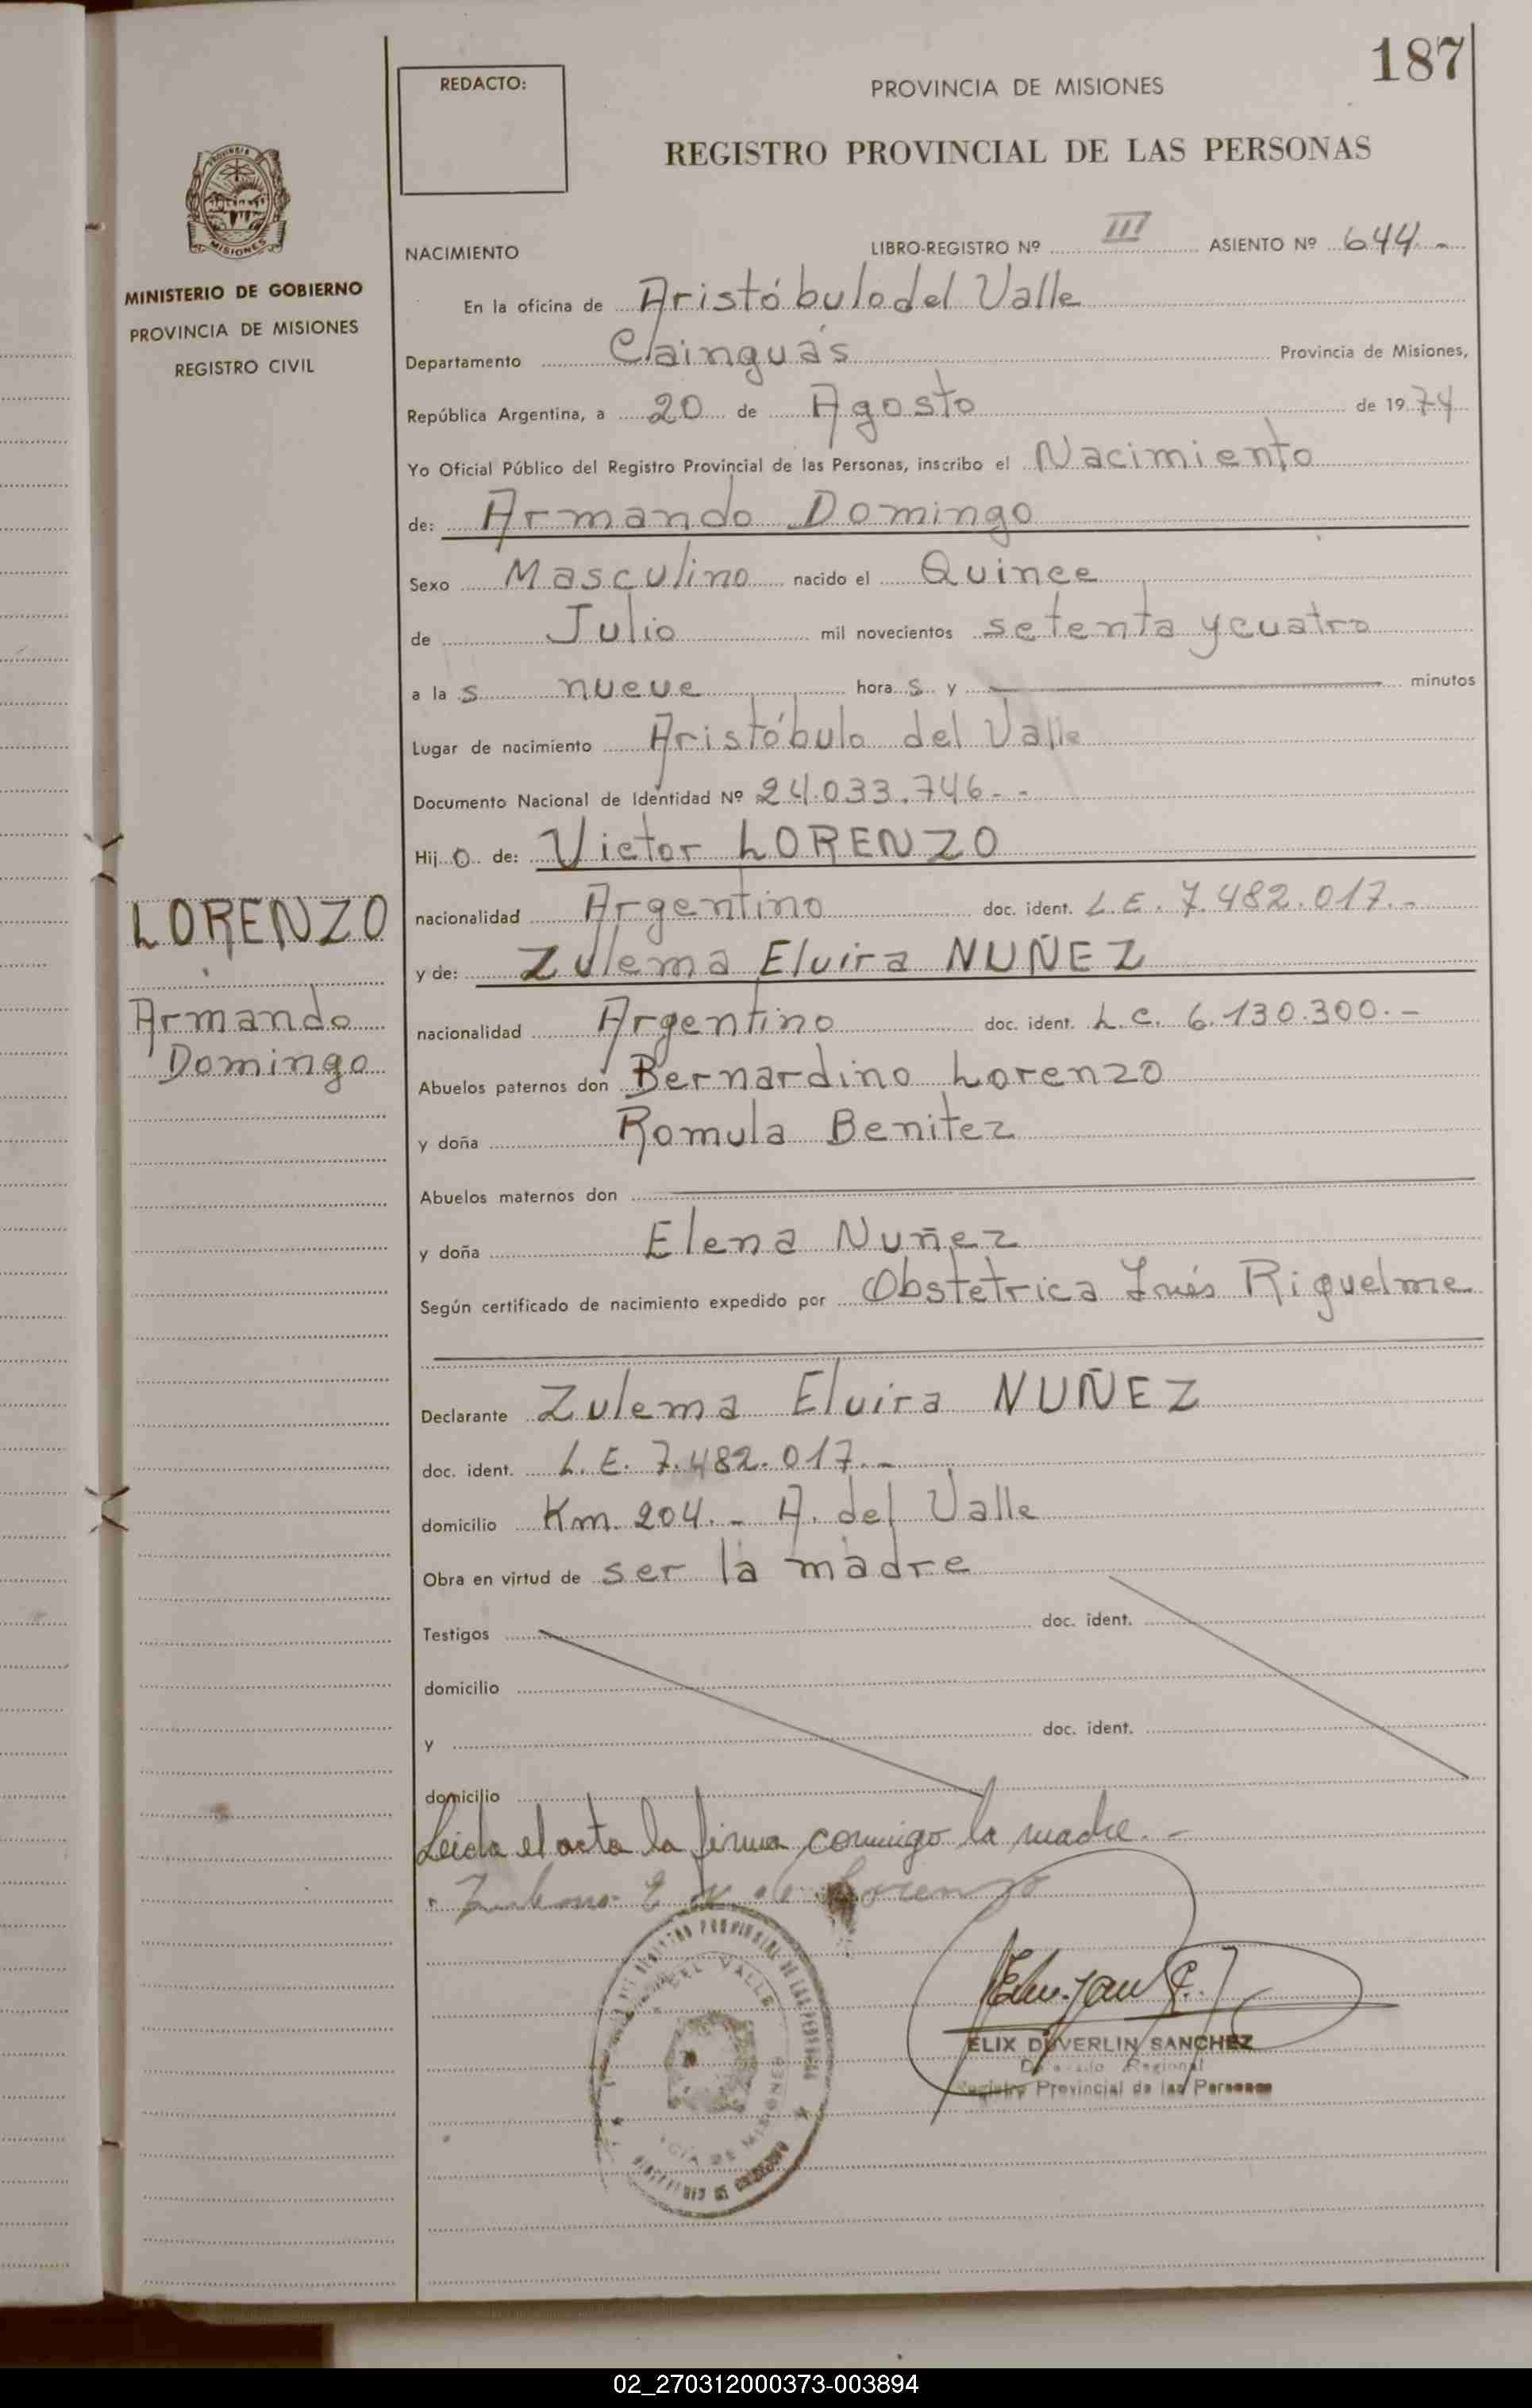 187
REDACTO:
PROVINCIA DE MISIONES
REGISTRO PROVINCIAL DE LAS PERSONAS
MISIONES
MINISTERIO DE GOBIERNO
PROVINCIA DE MISIONES
REGISTRO CIVIL
NACIMIENTO LIBRO-REGISTRO Nº III ASIENTO Nº 644.-
En la oficina de Aristóbulo del Valle
Departamento Cainguás Provincia de Misiones,
República Argentina, a 20 de Agosto de 1974
Yo Oficial Público del Registro Provincial de las Personas, inscribo el Nacimiento
de: Armando Domingo
Sexo Masculino nacido el Quince
de Julio mil novecientos setenta y cuatro
a la s nueve hora s y minutos
Lugar de nacimiento Aristóbulo del Valle
Documento Nacional de Identidad Nº 24.033.746--
Hij o de: Victor LORENZO
nacionalidad Argentino doc. ident. L.E. 7.482.017.-
y de: Zulema Elvira NUÑEZ
nacionalidad Argentino doc. ident. L.C. 6.130.300.-
Abuelos paternos don Bernardino Lorenzo
y doña Romula Benitez
Abuelos maternos don
y doña Elena Nuñez
Según certificado de nacimiento expedido por Obstetrica Inés Riguelme
Declarante Zulema Elvira NUÑEZ
doc. ident. L.E. 7.482.017.-
domicilio Km. 204.- A. del Valle
Obra en virtud de ser la madre
Testigos doc. ident.
domicilio
y doc. ident.
domicilio
Leida el acta la firma conmigo la madre.-
LORENZO
Armando
Domingo
DEL VALLE
ELIX DUVERLIN SANCHEZ
Regional
Registro Provincial de las Personas
02_270312000373-003894